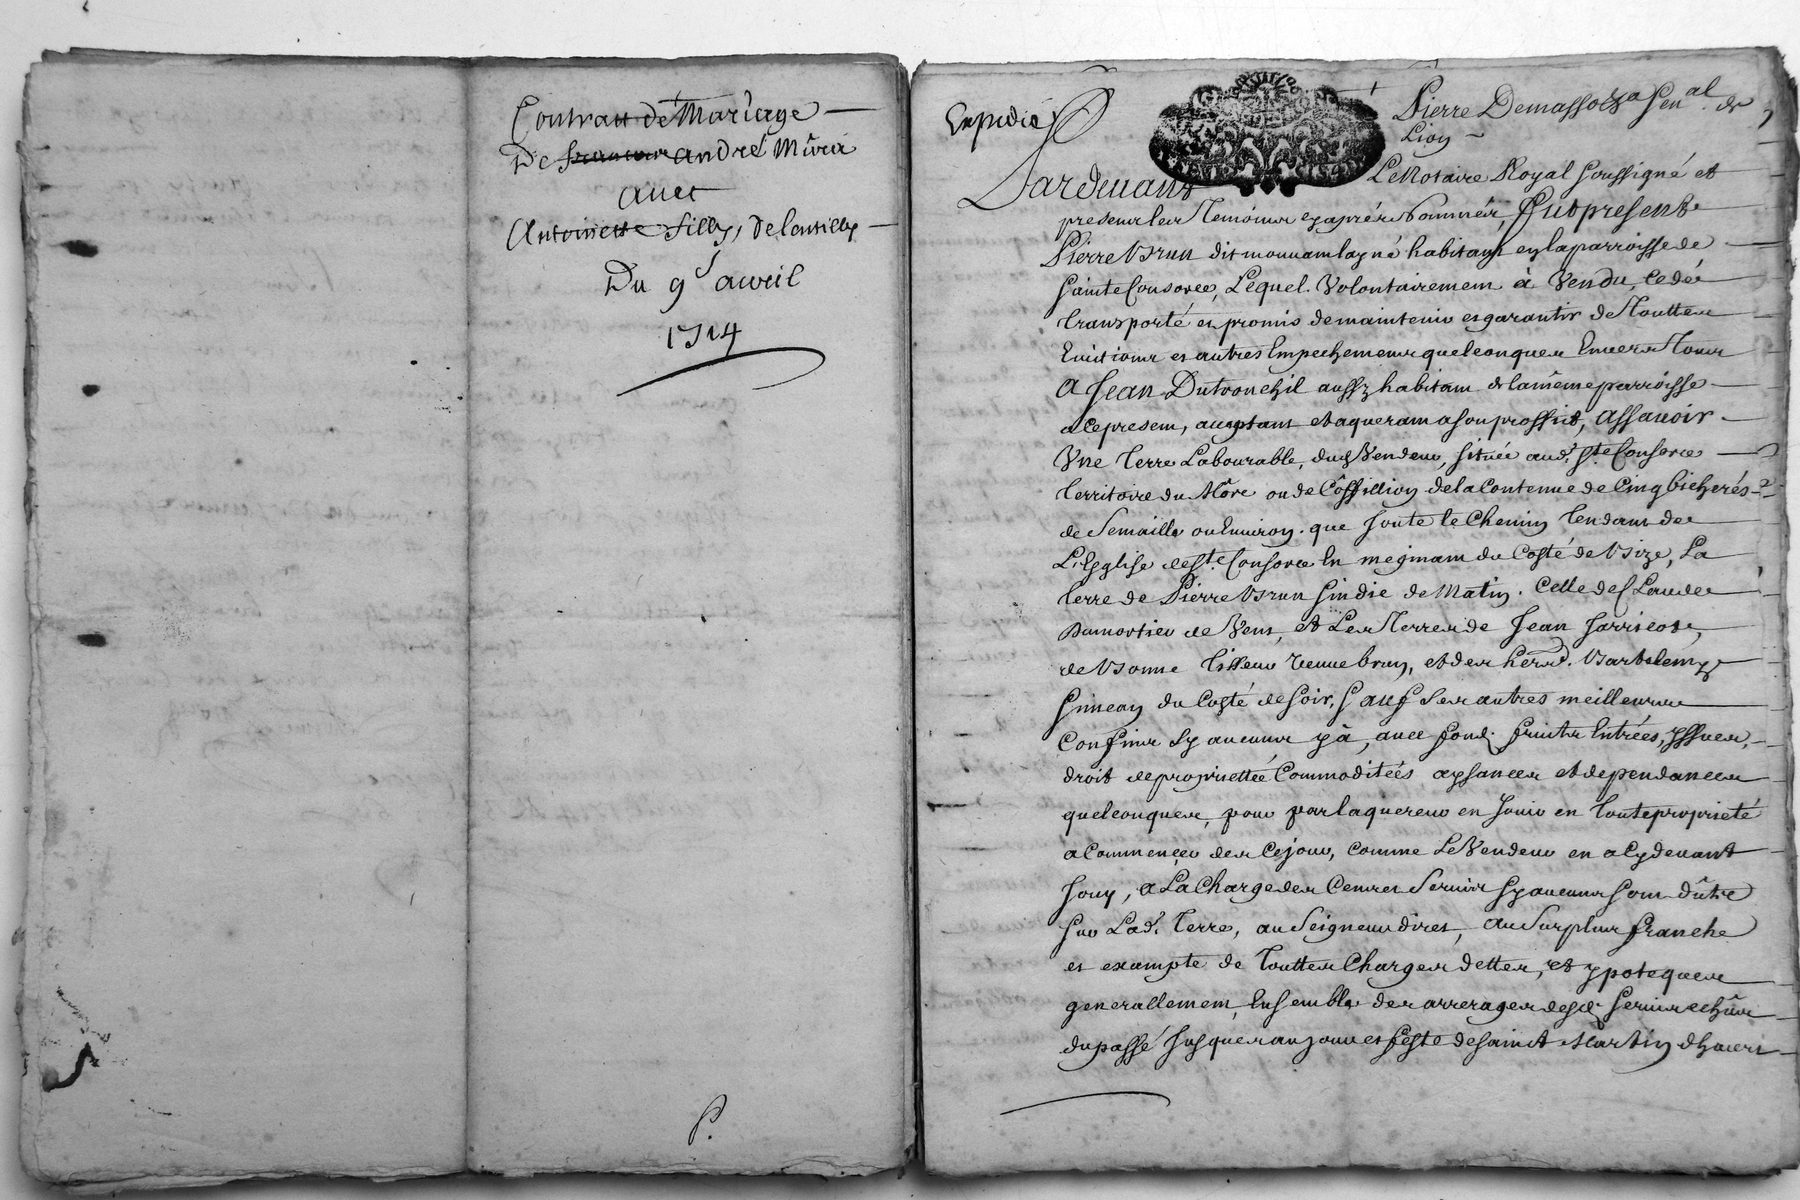 Contratt de Mariage
De andré Miviere
avec
Antoinette filly, De lentilly
Du 9e avril
1714
P.
Expedié
Pierre Demassolz a Senal. de
Lion
Pardevant Le Notaire Royal soussigné et
presens les Temoins cy aprés Nommés, fut present
Pierre Brun dit habitant en la parroisse de
Sainte Consorce, Lequel Volontairement à Vendu, cedé
transporté et promis de maintenir et garantir de Touttes
Evictions et autres Empechemens quelconques Envers Tous
A Jean Dutronchil aussy habitant de la même parroisse
a ce present, acceptant et aquerant a son proffit, Assavoir
Une Terre Labourable, dud Vendeur, située aud. Ste Consorce
Territoire du More ou de Coffillion de la Contenue de Cinq bicherés
de Semaille ou Environ. que Joute le Chemin Tendant de
L'Esglise de Ste Consorce En du Costé de Bize, La
terre de Pierre Brun Sindic de Matin. Celle de Claude
Dumortier de Vent, et Les Terres de Jean Jarricot,
de Bonne Tisseur Veuve brun, et des hers. Bartelemy
Simean du Costé de Soir, Sauf Ses autres meilleurs
Confins Sy aucuns y à, avec fond. fruits Entrées, yssues,
droit de propriettée Commoditées aysances et dependances
quelconques, pour par laquereur en Jouir en Toute proprieté
a Commencer des Ce jour, comme Le Vendeur en a Cy devant
Jouy, A La Charge des Cens et Servis Sy aucuns sont dûs
sur Lad. Terre, au Seigneur direct, au Surplus franche
et exampte de Touttes Charges dettes, et ypoteques
generallement, Ensemble des arrerages desd. Servis echûs
du passé Jusques au jour et feste de Sainct Martin dhivers